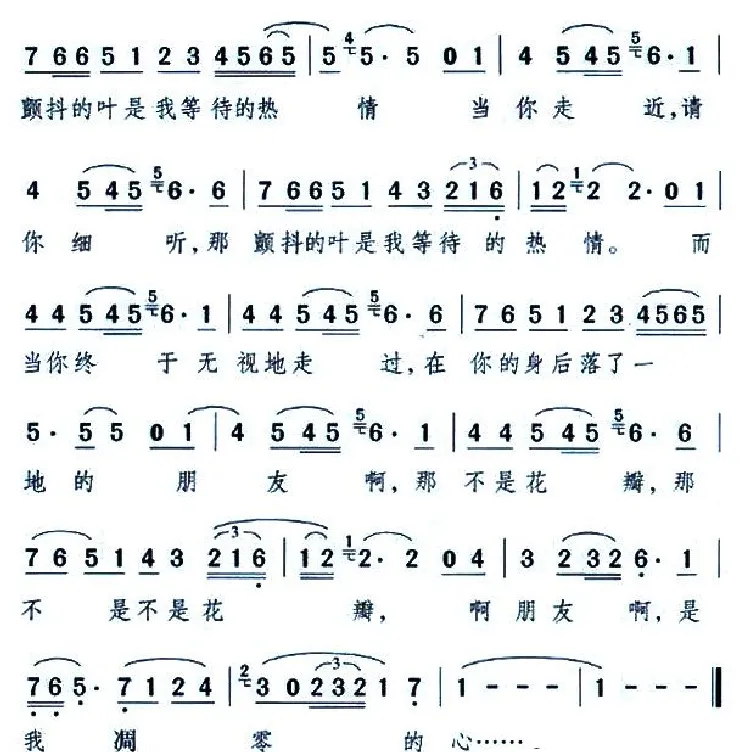 7 6 6 5 1 2 3 4 5 6 5 | 5 4 5· 5 0 1 | 4 5 4 5 5 6· 1 |
颤抖的叶是我等待的热 情 当你走 近,请
4 5 4 5 5 6· 6 | 7 6 6 5 1 4 3 2 1 6 | 1 2 1 2 2· 0 1 |
你细 听,那 颤抖的叶是我等待 的 热 情。 而
4 4 5 4 5 5 6· 1 | 4 4 5 4 5 5 6· 6 | 7 6 5 1 2 3 4 5 6 5 |
当你终 于无 视地走 过,在 你的身后落了一
5· 5 5 0 1 | 4 5 4 5 5 6· 1 | 4 4 5 4 5 5 6· 6 |
地的 朋 友 啊,那 不是花 瓣,那
7 6 5 1 4 3 2 1 6 | 1 2 1 2· 2 0 4 | 3 2 3 2 6· 1 |
不 是不是花 瓣, 啊朋友 啊,是
7 6 5· 7 1 2 4 | 2 3 0 2 3 2 1 7 | 1 - - - | 1 - - - ‖
我 凋 零 的 心……